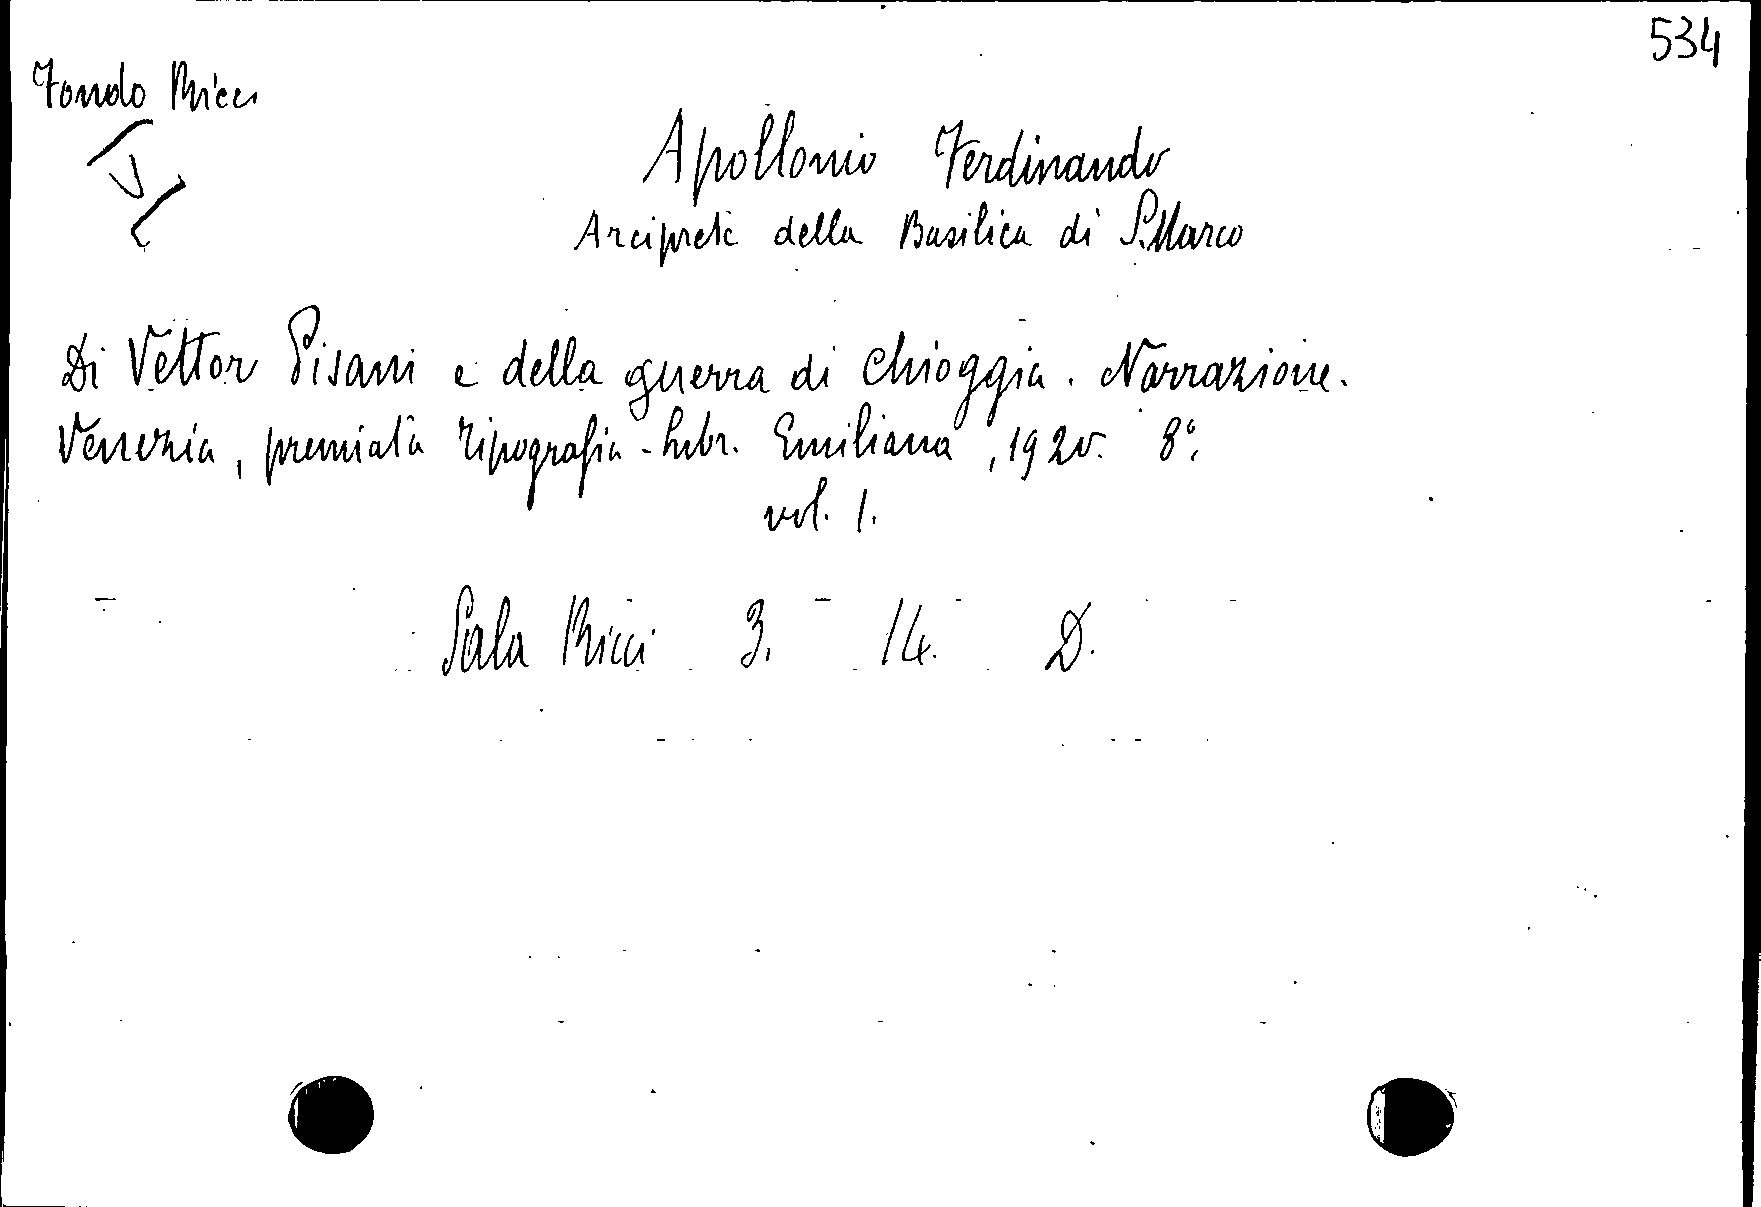 534
Fondo Ricci
Apollonio Ferdinando
Arciprete della Basilica di S. Marco
Di Vettor Pisani e della guerra di Chioggia. Narrazione.
Venezia, premiata Tipografia-Libr. Emiliana, 1920. 8°.
vol. 1.
Sala Ricci 3. 14. D.